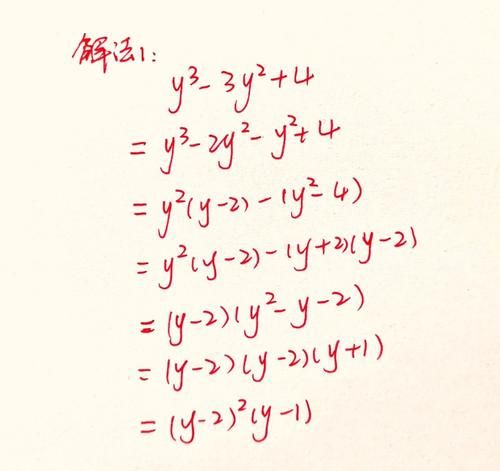 解法1:
y³-3y²+4
=y³-2y²-y²+4
=y²(y-2)-(y²-4)
=y²(y-2)-(y+2)(y-2)
=(y-2)(y²-y-2)
=(y-2)(y-2)(y+1)
=(y-2)²(y-1)